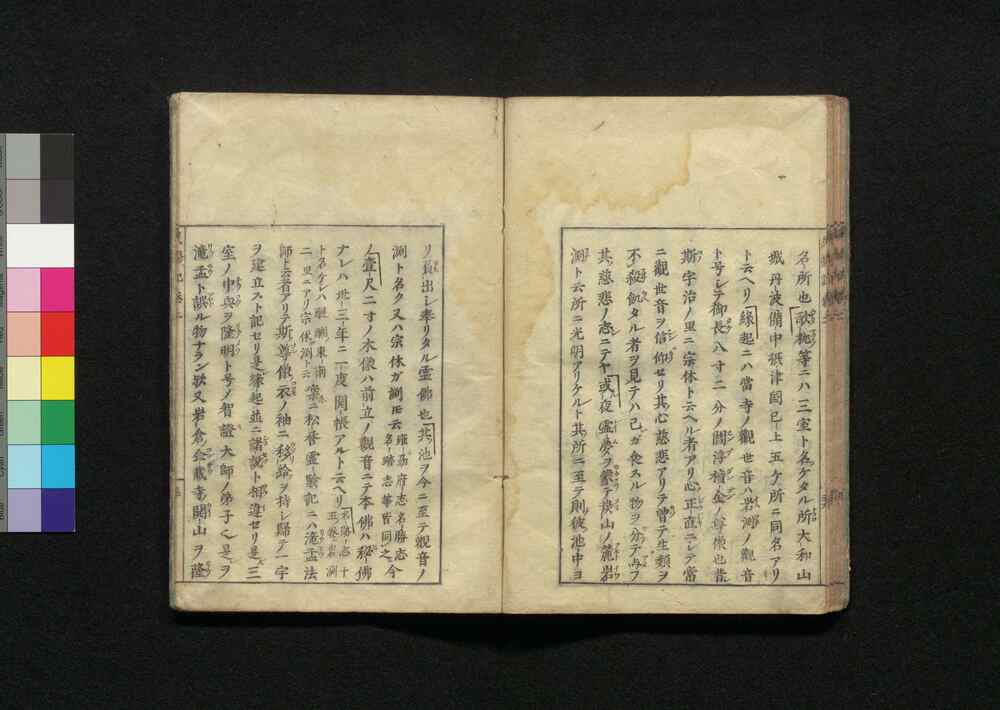 名所也歌枕等ニハ三室ト名ケタル所大和山
城丹波備中摂津国已上五ケ所ニ同名アリ
ト云ヘリ縁起ニハ當寺ノ觀世音ハ岩淵ノ觀音
ト号シテ御長八寸二分ノ閻浮檀金ノ尊像也昔
斯宇治ノ里ニ宗休ト云ヘル者アリ心正直ニシテ常
ニ觀世音ヲ信仰セリ其心慈悲アリテ曽テ生類ヲ
不殺飢タル者ヲ見テハ己ガ食スル物ヲ分テ与フ
其慈悲ノ志ニテヤ或夜霊夢ヲ蒙テ後山ノ麓岩
淵ト云所ニ光明アリケルト其所ニ至テ則彼池中ヨ
リ負出シ奉リタル霊佛也其池ヲ今ニ至テ觀音ノ
淵ト名ク又ハ宗休ガ淵ト云雍州府志名勝志
名跡志華皆同之今
ノ壹尺二寸ノ木像ハ前立ノ觀音ニテ本佛ハ秘佛
ナレハ卅三年ニ一度開帳アルト云ヘリ名勝志ニ十
五巻岩淵
ト名ケシハ 東南
ニ 里ニアリ宗休淵ト云案ニ松誉霊験記ニハ滝孟法
師ト云者アリテ斯尊像衣ノ袖ニ移給ヲ持シ歸テ一宇
ヲ建立スト記セリ是縁起並ニ諸説ト相違セリ是三
室ノ中興ヲ隆明ト号ノ智證大師ノ弟子也是ヲ
滝孟ト誤ル物ナラン歟又岩倉金蔵寺開山ヲ隆